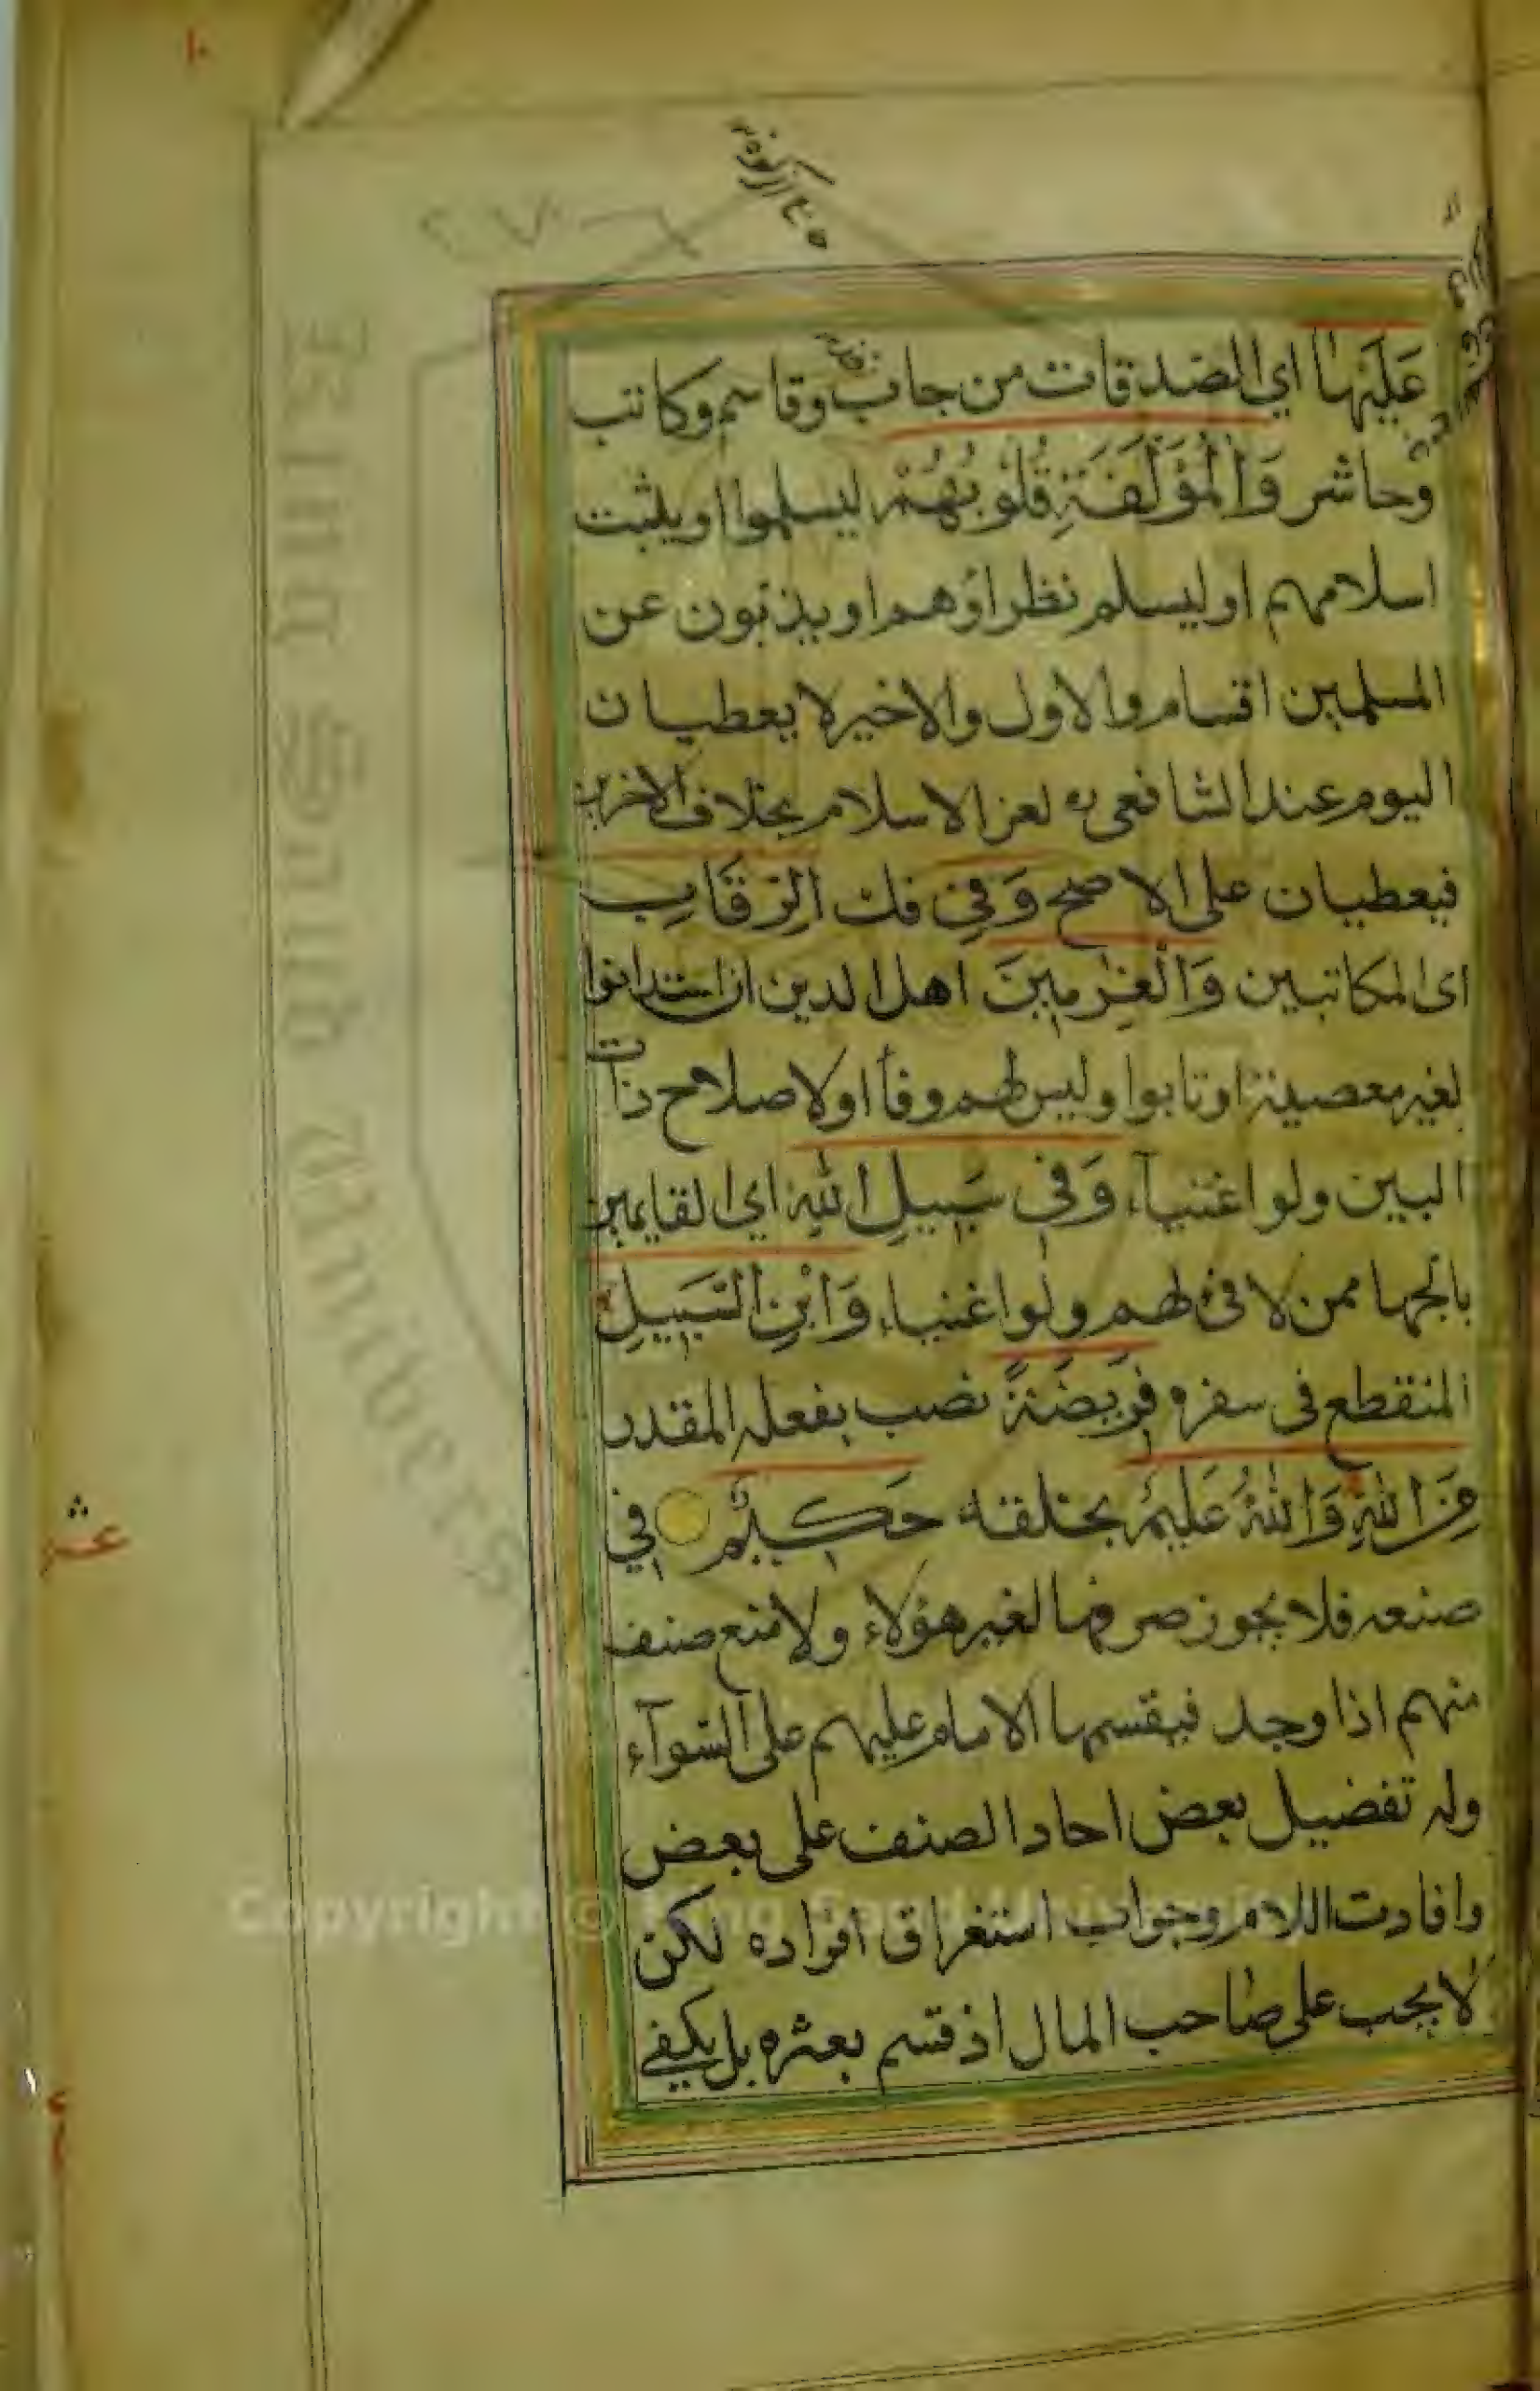 ١٠
عَلَيْهَا اي الصدقات من جاب وقاسم وكاتب
وحاشر وَالْمُؤَلَّفَةِ قُلُوبُهُمْ ليسلموا او يثبت
اسلامهم او ليسلم نظراؤهم او يذبون عن
المسلمين اقسام والاول والاخير لا يعطيان
اليوم عند الشافعى لعز الاسلام بخلاف الاخرين
فيعطيان على الاصح وَفِي فك الرِّقَابِ
اى المكاتبين وَالْغٰرِمِينَ اهل الدين ان استدانوا
لغير معصية او تابوا وليس لهم وفآ او لاصلاح ذات
البين ولو اغنيآء وَفِي سَبِيلِ اللهِ اي القايمين
بالجهاد ممن لا فئ لهم ولو اغنياء وَابْنِ السَّبِيلِ
المنقطع فى سفره فَرِيضَةً نصب بفعله المقدر
مِنَ اللهِ وَاللهُ عَلِيمٌ بخلقه حَكِيمٌ في
صنعه فلا يجوز صرفها لغير هؤلاء ولا منع صنف
منهم اذا وجد فيقسمها الامام عليهم على السوآء
وله تفضيل بعض احاد الصنف على بعض
وافادت اللام وجواب استغراق افراده لكن
لا يجب على صاحب المال اذ قسم بعثره بل يكفى
عشر
King Saud University
Copyright © King Saud University